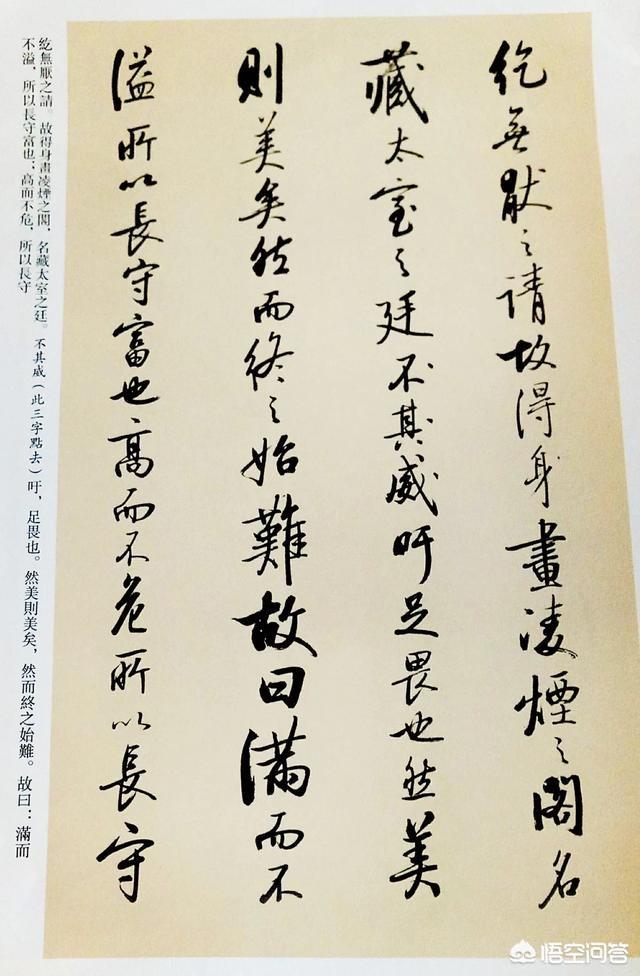 紇無猒之請故得身畫凌煙之閣名
藏太室之廷不其威吁足畏也然美
則美矣然而終之始難故曰滿而不
溢所以長守富也高而不危所以長守
紇無厭之請。故得身畫凌煙之閣，名藏太室之廷。不其威（此三字點去）吁，足畏也。然美則美矣，然而終之始難。故曰：滿而
不溢，所以長守富也；高而不危，所以長守
悟空问答